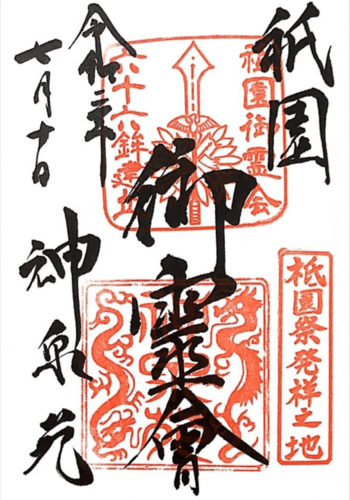 祇園
御靈會
令和
七月十日
神泉苑
祇園御霊会
六十六鉾建立
祇園祭発祥之地